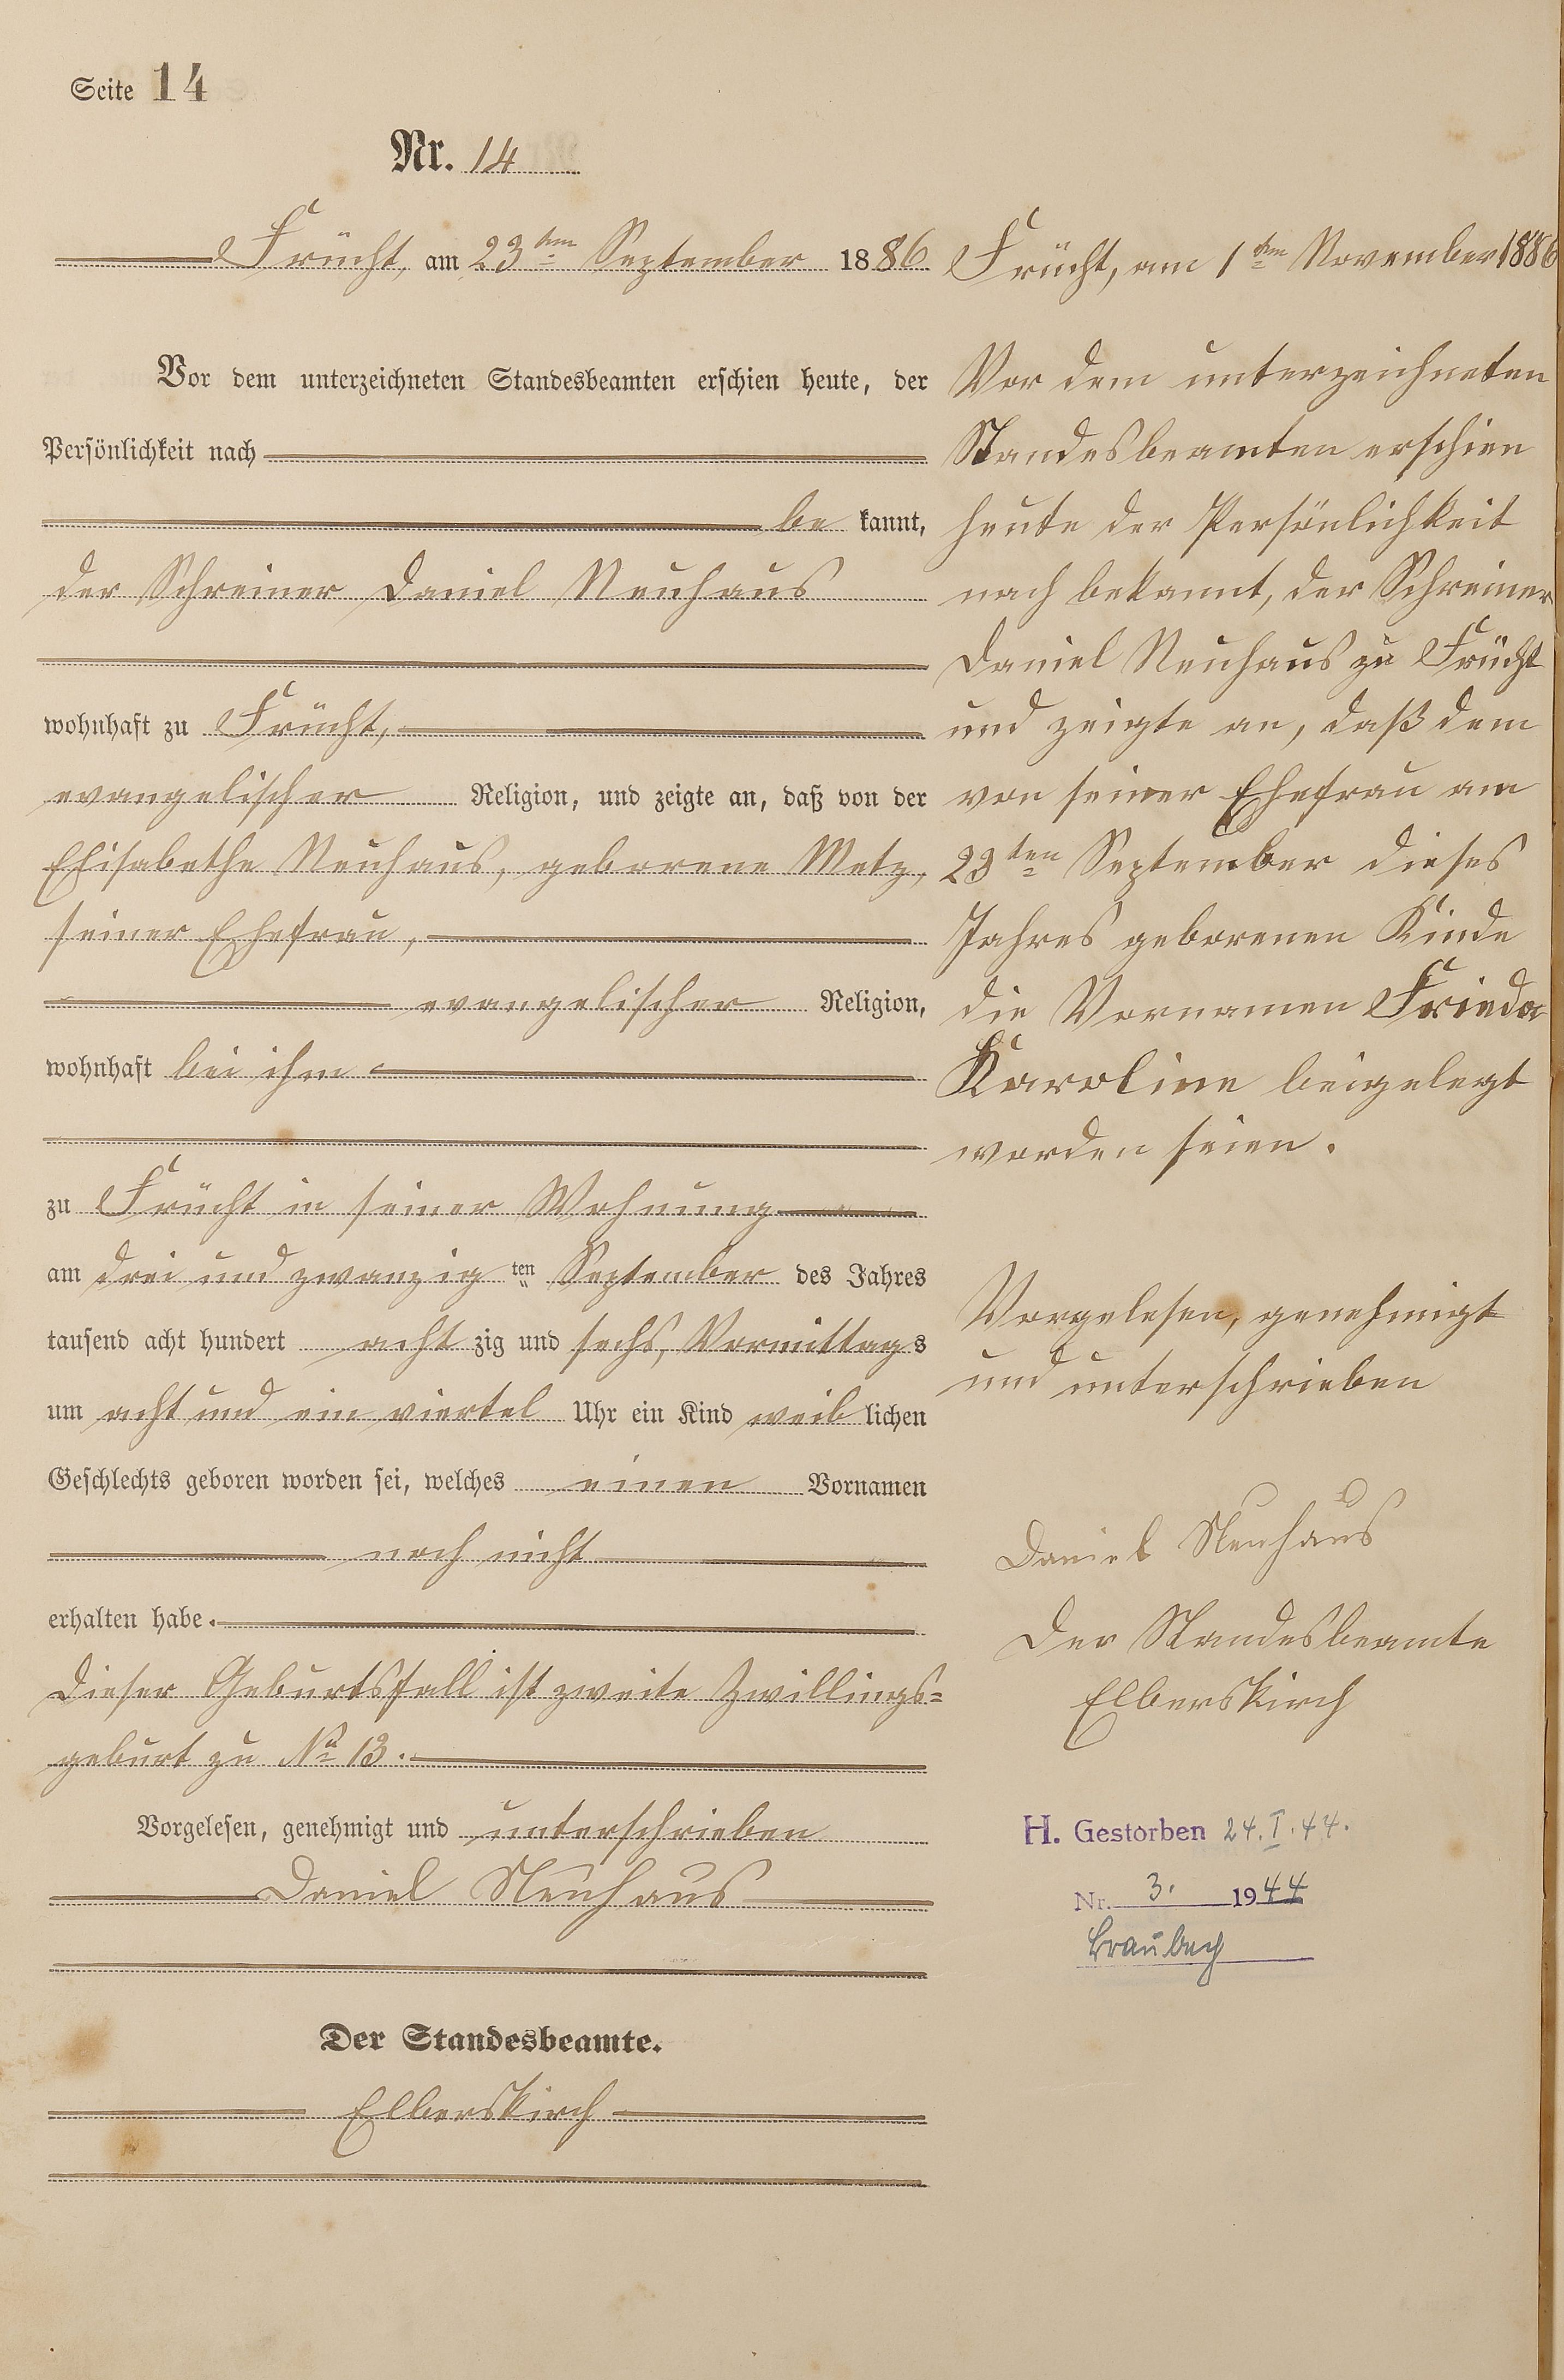 Seite 14
Nr. 14
Frücht, am 23ten September 1886
Vor dem unterzeichneten Standesbeamten erschien heute, der
Persönlichkeit nach
be kannt,
der Schreiner Daniel Neuhaus
wohnhaft zu Frücht,
evangelischer Religion, und zeigte an, daß von der
Elisabethe Neuhaus, geborene Metz,
seiner Ehefrau,
evangelischer Religion,
wohnhaft bei ihm
zu Frücht in seiner Wohnung
am drei und zwanzig ten September des Jahres
tausend acht hundert acht zig und sechs, Vormittags
um acht und ein viertel Uhr ein Kind weib lichen
Geschlechts geboren worden sei, welches einen Vornamen
noch nicht
erhalten habe.
Dieser Geburtsfall ist zweite Zwillings=
geburt zu No 13.
Vorgelesen, genehmigt und unterschrieben
Daniel Neuhaus
Der Standesbeamte.
Elberskirch
Frücht, am 1ten November 1886
Vor dem unterzeichneten
Standesbeamten erschien
heute der Persönlichkeit
nach bekannt, der Schreiner
Daniel Neuhaus zu Frücht
und zeigte an, daß dem
von seiner Ehefrau am
23ten September dieses
Jahres geborenen Kinde
die Vornamen Frieda
Karoline beigelegt
worden seien.
Vorgelesen, genehmigt
und unterschrieben
Daniel Neuhaus
Der Standesbeamte
Elberskirch
H. Gestorben 24.I.44.
Nr. 3. 1944
Braubach